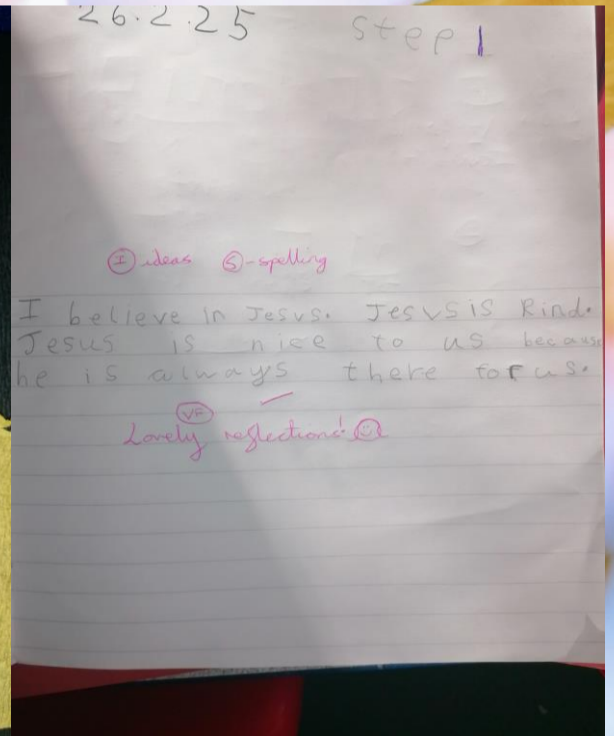 26.2.25 step 1
I ideas S-spelling
I believe in Jesus. Jesus is kind.
Jesus is nice to us because
he is always there for us.
VF
Lovely reflection!